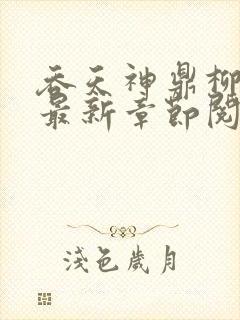 吞天神鼎柳
最新章節閱
淺色歲月